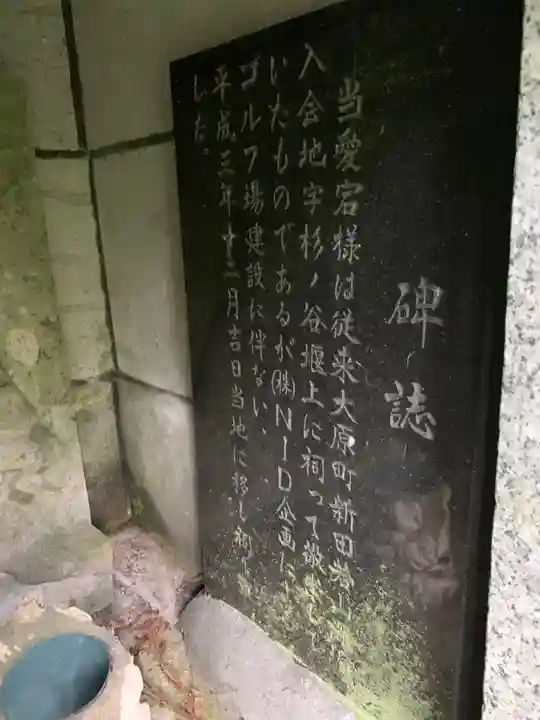 碑誌
当愛宕様は従来大原町新田
入会地字杉ノ谷堰上に祠って敬
いたものであるが㈱NID企画
ゴルフ場建設に伴ない、
平成三年十二月吉日当地に移し祠
した。